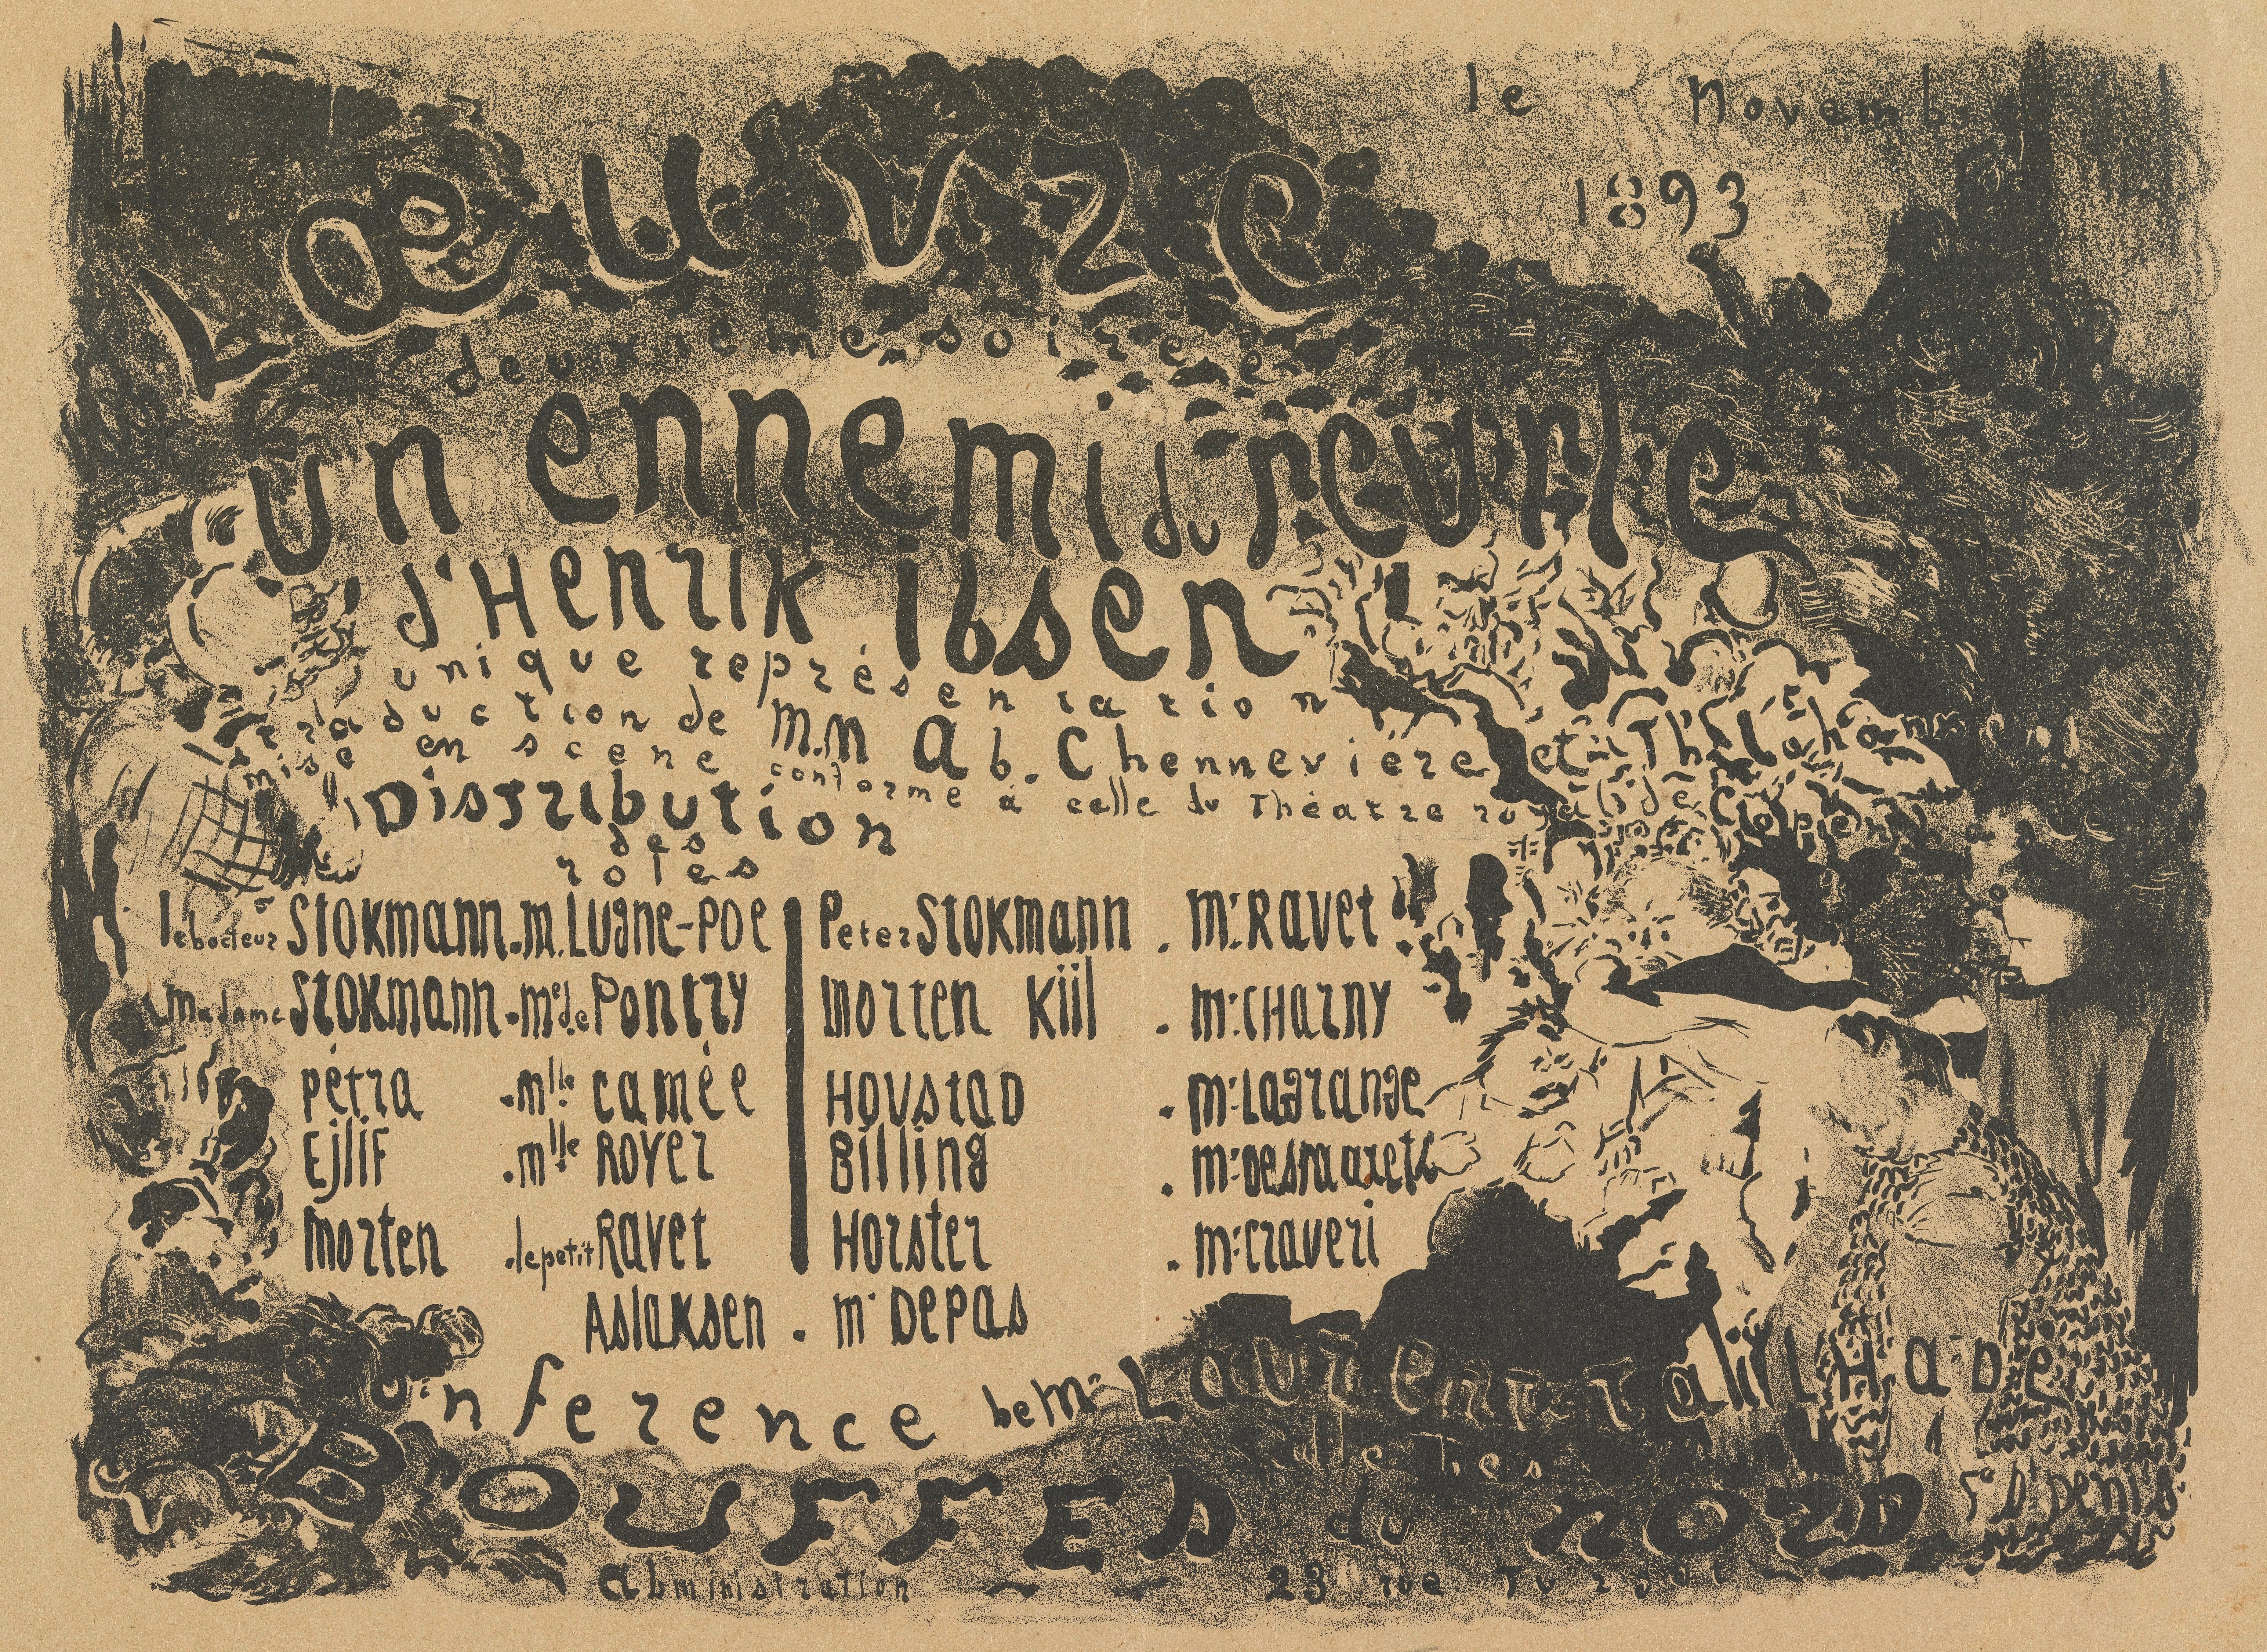 le novembre
1893
L'œuvre
deuxieme soirée
un ennemi du peuple
d'Henrik Ibsen
unique représentation
traduction de M.M Ab. Chennevière et Th. Johannsen
mise en scene conforme à celle du Théatre royal de Copenhague
Distribution
des
roles
le docteur Stokmann . m. Lugne-Poe
Peter Stokmann . mr. Ravet
Madame Stokmann . me de Pontry
morten Kiil . mr. CHarny
pétra . mlle camée
HOVstaD . mr. Lagrange
Ejlif . mlle Royer
Billing . mr. Desmarets
morten . le petit Ravet
Horster . mr. Craveri
Aslaksen . mr Depas
Conference de mr Laurent Tailhade
BOUFFES du NORD Fg St Denis
administration 23 rue Turgot